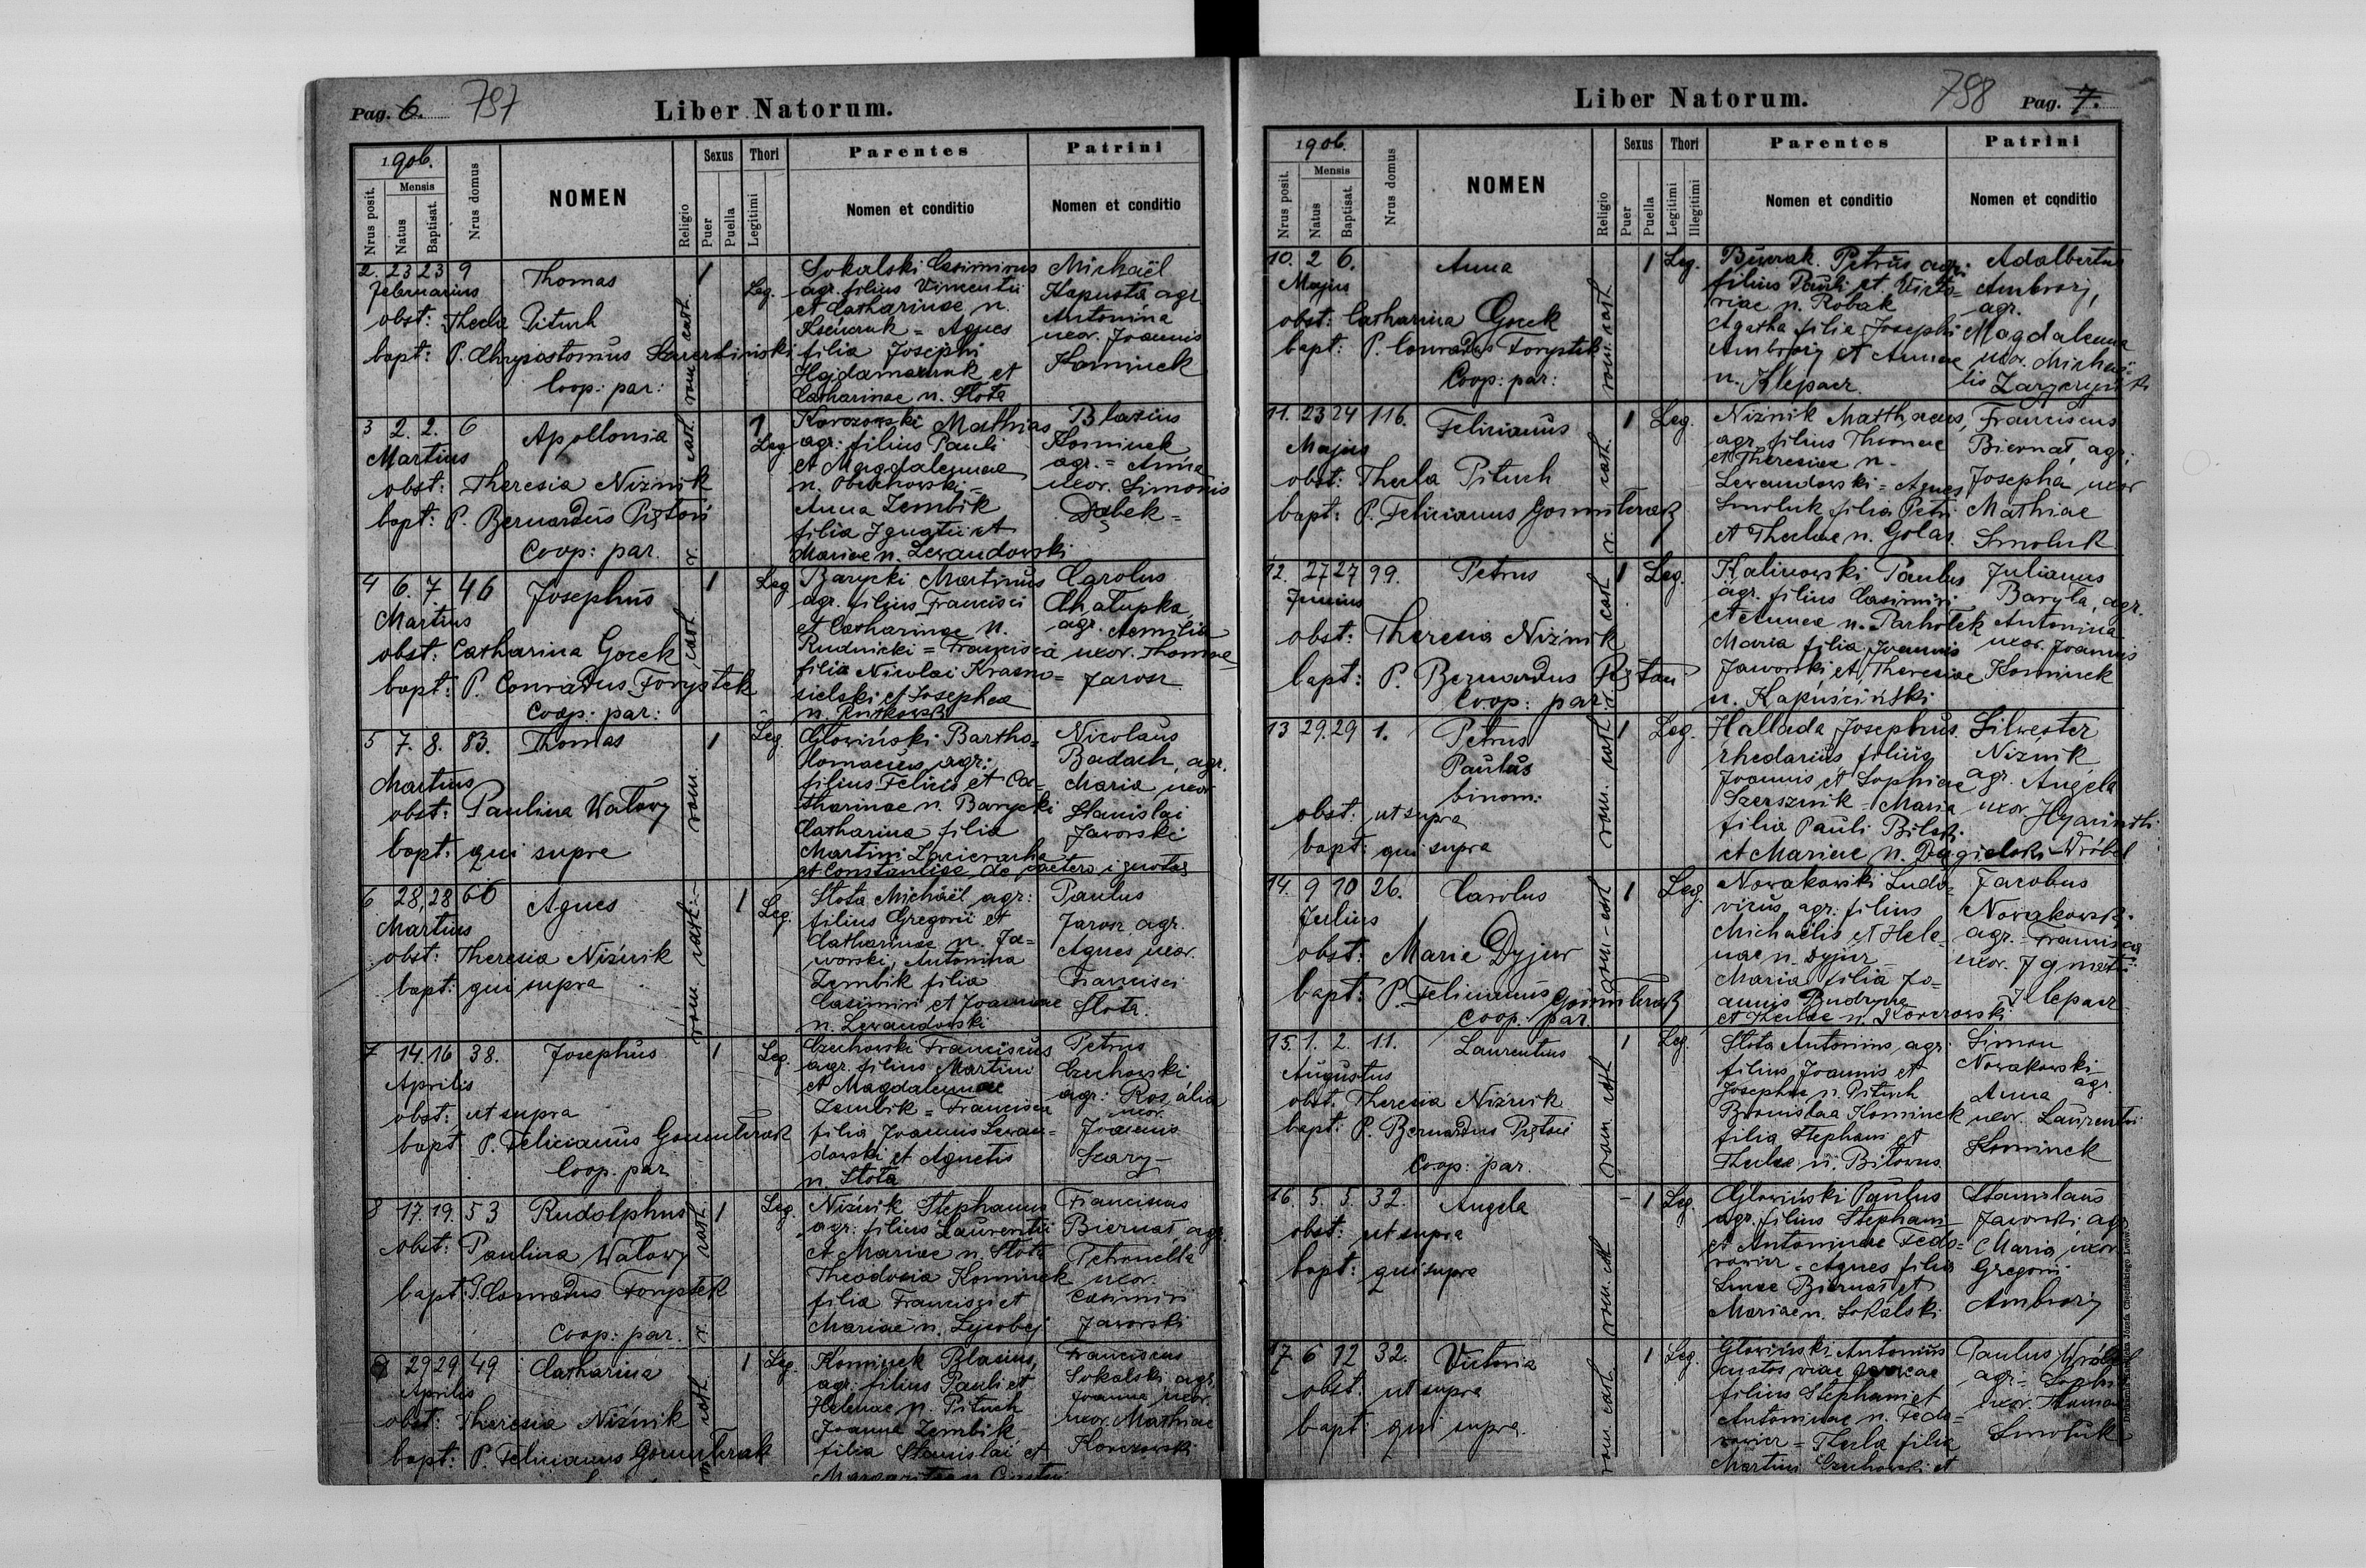 Pag. 6. 797 Liber Natorum.
1906. Nrus domus NOMEN Religio Sexus Thori Parentes Patrini
Nrus posit. Mensis Natus Baptisat. Puer Puella Legitimi Nomen et conditio Nomen et conditio
2. 23 23 9 Thomas 1 Leg. Sokalski Casimirus Michaël
Februarius agr. filius Vincentii Kapusta agr.
obst: Thecla Pituch et Catharinae n. Antonina
Agnes uxor. Joannis
bapt: P. Chrysostomus filia Josephi Kominek
Coop: par: et
rom. cath.
Catharinae n. Słota
3 2. 2. 6 Apollonia 1 Leg Mathias Blasius
Martius agr: filius Pauli Kominek
et Magdalennae agr. = Anna
obst: Theresia Niźnik n. uxor. Simonis
bapt: P. Bernardus Anna Zembik Dąbek =
Coop: par. filia Ignatii et
r. cath.
Mariae n. Lewandowski
4 6. 7. 46 Josephus 1 Leg Barycki Martinus Carolus
Martius agr. filius Francisci Chałupka
et Catharinae n. agr. Aemilia
obst: Catharina Gocek Rudnicki = Francisca uxor. Thomae
bapt: P. Conradus Forystek filia Nicolai Krasno= Jarosz
Coop: par: sielski et Josephae
cath.
n. Rutkowski
5 7. 8. 83. Thomas 1 Leg. Głowiński Bartho= Nicolaus
Martius lomaeus agr: Badach, agr.
filius Felicis et Ca= Maria uxor
obst: Paulina Watowy tharinae n. Barycki Stanislai
bapt: qui supra Catharina filia Jaworski
rom.
Martini
et Constantiae de caetero ignotae
6 28, 28 66 Agnes 1 Leg. Słota Michaël agr: Paulus
Martius filius Gregorii et Jarosz, agr.
obst: Theresia Niźnik Catharinae n. Ja= Agnes uxor.
worski, Antonina Francisci
bapt: qui supra Zembik filia Słota.
rom. cath.
Casimiri et Joannae
n. Lewandowski
7 14. 16 38. Josephus 1 Leg. Czechowski Franciscus Petrus
Aprilis agr. filius Martini Czechowski
et Magdalennae agr: Rosalia
obst: ut supra Zembik = Francisca uxor.
bapt P. Felicianus filia Joannis Lewan= Joannis
Coop: par dowski et Agnetis Szary
n. Słota
8 17. 19. 53 Rudolphus 1 Leg. Niźnik Stephanus Franciscus
obst: Paulina Watowy agr: filius Laurentii Biernat, agr
et Mariae n. Słota Petronella
Theodosia Kominek uxor.
bapt: P. Conradus Forystek filia Francisci et Casimiri
Coop: par. Mariae n. Jaworski
r. cath.
9 29 29 49 Catharina 1 Leg. Kominek Blasius, Franciscus
Aprilis agr: filius Pauli et Sokalski agr
obst: Theresia Niźnik Helenae n. Pituch Joanna uxor.
Joanna Zembik uxor. Mathiae
bapt: P. Felicianus filia Stanislai et
Liber Natorum. 798 Pag. 7.
1906. Nrus domus NOMEN Religio Sexus Thori Parentes Patrini
Nrus posit. Mensis Natus Baptisat. Puer Puella Legitimi Illegitimi Nomen et conditio Nomen et conditio
10. 2 6. Anna 1 Leg. Petrus agr: Adalbertus
Majus filius Pauli et Victo= Ambroży,
obst: Catharina Gocek riae n. Robak agr.
Agatha filia Josephi Magdalenna
bapt: P. Conradus Forystek Ambroży et Annae uxor. Michaë=
Coop: par: n. Klepacz. lis
rom. cath.
11. 23 24 116. Felicianus 1 Leg. Niźnik Matthaeus, Franciscus
Majus agr. filius Thomae Biernat, agr:
obst: Thecla Pituch et Theresiae n. Josepha uxor
Lewandowski = Agnes Mathiae
bapt: P. Felicianus Smoluk filia Petri Smoluk
r. cath.
et Theclae n. Gołas.
12. 27 27 99. Petrus 1 Leg. Kalinowski Paulus Julianus
Junius agr. filius Casimiri Baryła, agr.
obst: Theresia Niźnik et Annae n. Parhotek Antonina
Maria filia Joannis uxor. Joannis
bapt: P. Bernardus Jaworski et Theresiae Kominek
Coop: par: n. Kapuściński
r. cath
13 29. 29 1. Petrus 1 Leg. Hallada Josephus Silvester
Paulus rhedarius filius Niźnik
binom: Joannis et Sophiae agr. Angela
obst: ut supra Szersznik = Maria uxor. Hyacinthi
bapt: qui supra filia Pauli Bilski Wróbel
et Mariae n.
rom. cath
14. 9 10 26. Carolus 1 Leg Nowakowski Ludo= Jacobus
Julius vicus agr: filius Nowakowski
obst: Maria Dyjur Michaëlis et Hele= agr. = Francisca
nae n. Dyjur uxor. Ignatii
bapt: P. Felicianus Maria filia Jo= Klepacz
Coop. par. annis
rom - cath
et Theclae n.
15. 1. 2. 11. Laurentius 1 Leg. Słota Antonius, agr: Simon
Augustus filius Joannis et Nowakowski
obst: Theresia Niźnik Josephae n. Pituch agr. Anna
bapt: P. Bernardus Bronislaa Kominek uxor. Laurentii
Coop: par. filia Stephani et Kominek
rom cath
Theclae n. Bitowus
16. 5. 5. 32. Angela 1 Leg. Głowiński Paulus Stanislaus
obst: ut supra agr. filius Stephani Jaworski agr
et Antoninae Fedo= Maria uxor
bapt: qui supra rowicz = Agnes filia Gregorii
Lucae Biernat et Ambroży
Mariae n. Sokalski
17. 6 12 32. Victoria 1 Leg. Głowiński Antonius Paulus Wróbel
obst: ut supra custos viae ferreae agr =
bapt: qui supra. filius Stephani et uxor. Thomae
Antoninae n. Fedo= Smoluk
rowicz = Thecla filia
rom. cath.
Martini Czechowski et